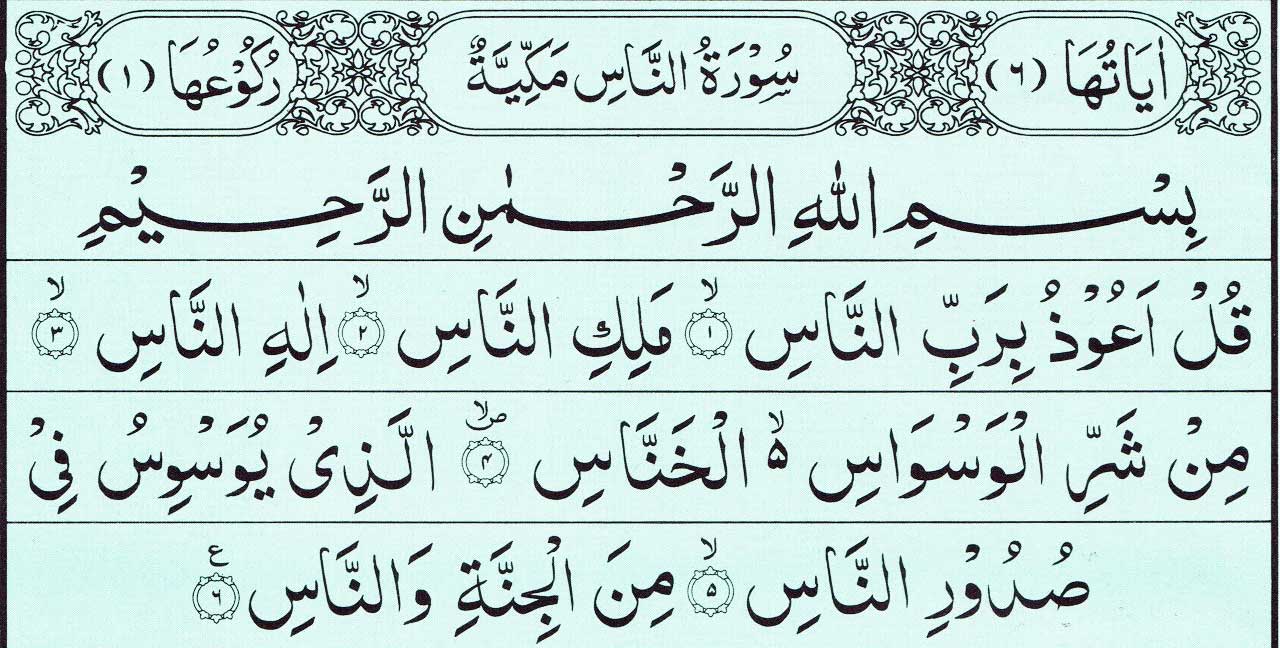 اٰيَاتُهَا (٦) سُوْرَةُ النَّاسِ مَكِّيَّةٌ رُكُوْعُهَا (١)
بِسْمِ اللهِ الرَّحْمٰنِ الرَّحِيْمِ
قُلْ اَعُوْذُ بِرَبِّ النَّاسِ ۙ﴿١﴾ مَلِكِ النَّاسِ ۙ﴿٢﴾ اِلٰهِ النَّاسِ ۙ﴿٣﴾
مِنْ شَرِّ الْوَسْوَاسِ ۙ۵ الْخَنَّاسِ ۪ۙ﴿۴﴾ الَّذِىْ يُوَسْوِسُ فِىْ
صُدُوْرِ النَّاسِ ۙ﴿۵﴾ مِنَ الْجِنَّةِ وَالنَّاسِ ﴿٦﴾ ع